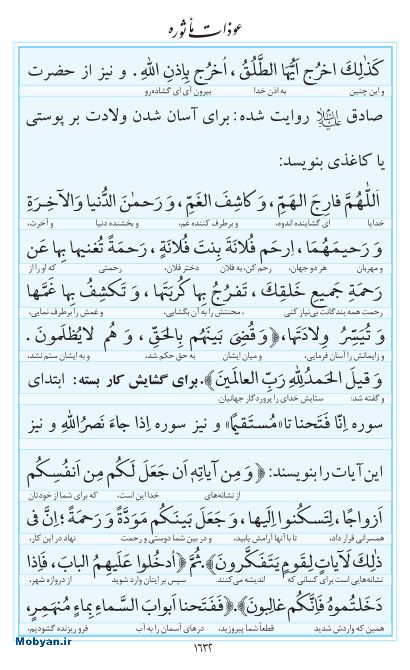 عوذات مأثوره
كَذٰلِكَ اخرُج اَيُّهَا الطَّلُقُ، اُخرُج بِاِذنِ اللهِ. و نیز از حضرت
و این چنین بیرون آی ای گشاده‌رو به اذن خدا
صادق علیه‌السلام روایت شده: برای آسان شدن ولادت بر پوستی
یا کاغذی بنویسد:
اَللّٰهُمَّ فارِجَ الهَمِّ، وَ كاشِفَ الغَمِّ، وَ رَحمٰنَ الدُّنيا وَالآخِرَةِ
خدایا ای گشاینده اندوه، و برطرف کننده غم، و بخشنده دنیا و آخرت،
وَ رَحيمَهُما، اِرحَم فُلانَةَ بِنتَ فُلانَةٍ، رَحمَةً تُغنيها بِها عَن
و مهربان هر دو جهان، رحم کن، به فلان دختر فلان، رحمتی که او را از
رَحمَةِ جَميعِ خَلقِكَ، تَفرُجُ بِها كُربَتَها، وَ تَكشِفُ بِها غَمَّها
رحمت همه بندگانت بی‌نیاز کنی، محنتش را به آن بگشایی، و غمش را برطرف نمایی،
وَ تُيَسِّرُ وِلادَتَها، ﴿وَ قُضِىَ بَينَهُم بِالحَقِّ، وَ هُم لايُظلَمونَ.
و زایمانش را آسان فرمایی. و میان ایشان به حق حکم شد، و به ایشان ستم نشد،
وَ قيلَ الحَمدُلِلّٰهِ رَبِّ العالَمينَ﴾. برای گشایش کار بسته: ابتدای
و گفته شد: ستایش خدای را پروردگار جهانیان.
سوره اِنّا فَتَحنا تا «مُستَقيمًا» و نیز سوره اِذا جاءَ نَصرُاللهِ و نیز
این آیات را بنویسند: ﴿وَ مِن آياتِهِ اَن جَعَلَ لَكُم مِن اَنفُسِكُم
از نشانه‌های خدا این است، که برای شما از خودتان
اَزواجًا، لِتَسكُنوا اِلَيها، وَ جَعَلَ بَينَكُم مَوَدَّةً وَ رَحمَةً؛ اِنَّ فى
همسرانی قرار داد، تا با آنها آرامش یابید، و در بین شما دوستی و رحمت نهاد در این کار،
ذٰلِكَ لَآياتٍ لِقَومٍ يَتَفَكَّرونَ﴾. ثُمَّ ﴿اُدخُلوا عَلَيهِمُ البابَ، فَاِذا
نشانه‌هایی است برای کسانی که اندیشه می‌کنند. سپس بر اینان وارد شوید از دروازه شهر،
دَخَلتُموهُ فَاِنَّكُم غالِبونَ﴾. ﴿فَفَتَحنا اَبوابَ السَّماءِ بِماءٍ مُنهَمِرٍ،
همین که واردش شدید قطعاً شما پیروزید، درهای آسمان را به آب فرو ریزنده گشودیم،
۱۶۳۲
Mobyan.ir